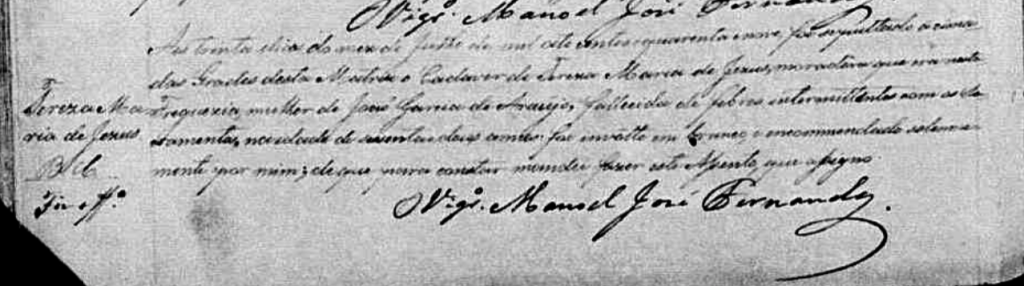 Vigrº. Manoel José Fernandes
Aos trinta dias do mez de Julho de mil oito centos quarenta e nove foi sepultado acima
das Grades desta Matriz o Cadaver de Tereza Maria de Jesus, moradora que era nesta
Freguezia, mulher de José Garcia de Araujo, fallecida de febres intermittentes com os sa
cramentos, na idade de sessenta e dous annos; foi involto em branco, e encommendado solemne
mente por mim; de que para constar mandei fazer este Assento, que assigno.
Vigrº. Manoel José Fernandes.
Tereza Ma
ria de Jesus